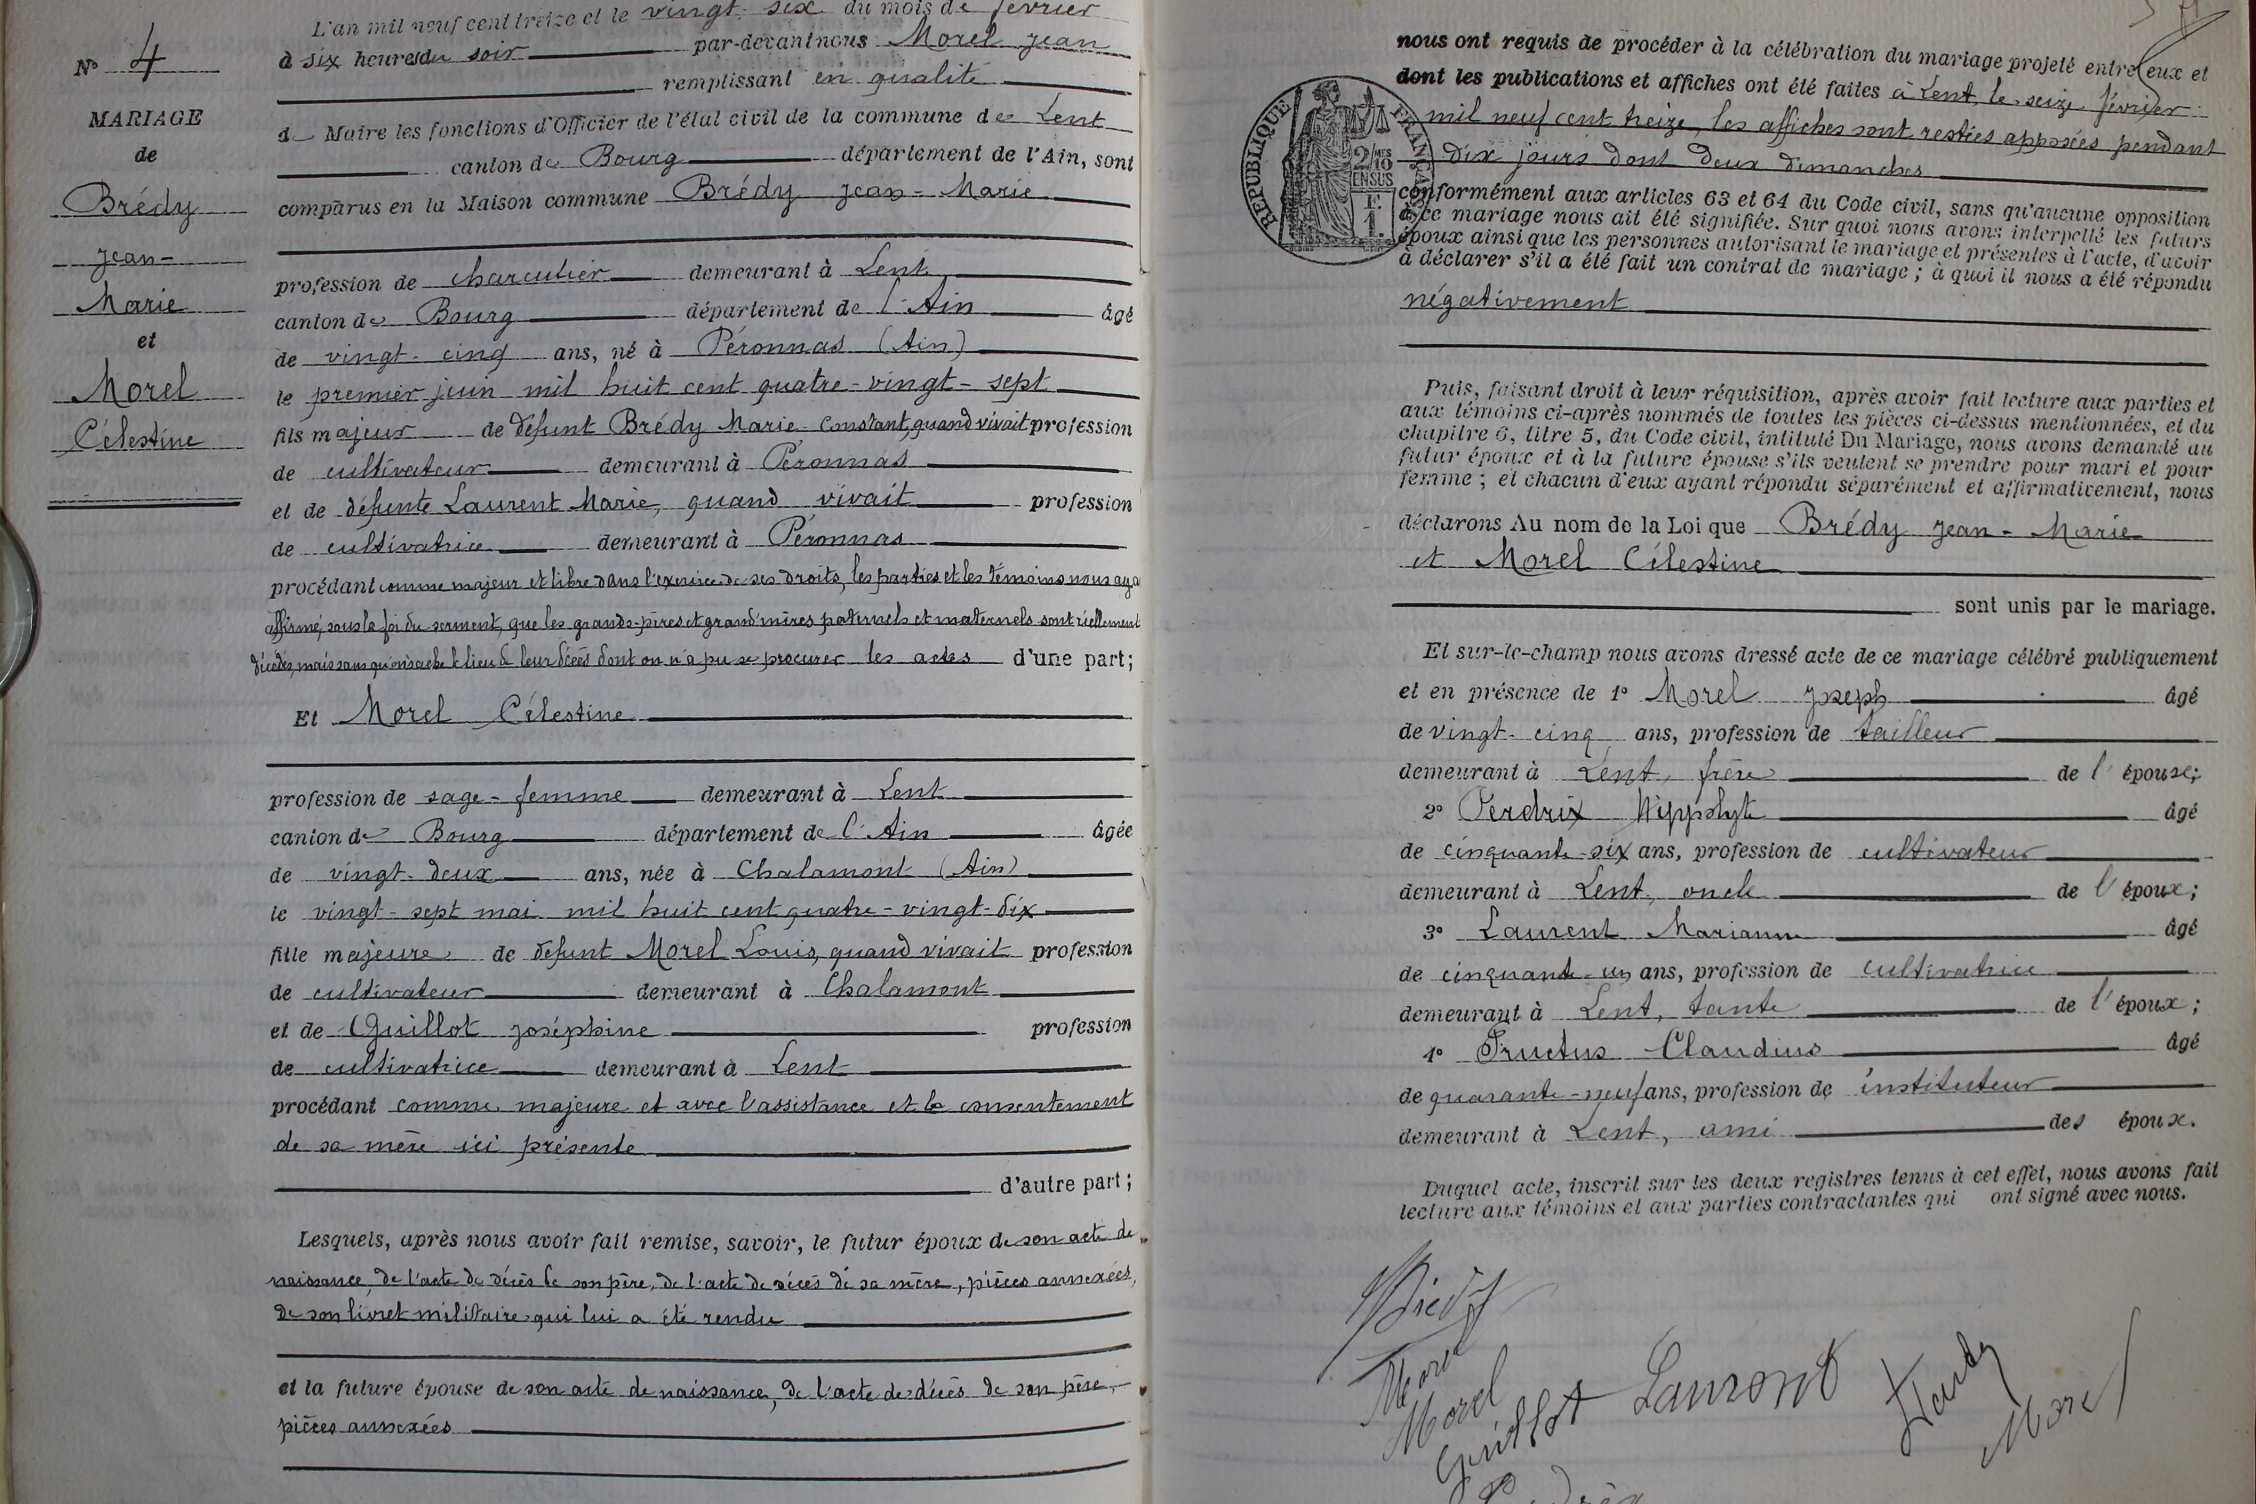 L'an mil neuf cent treize et le vingt-six du mois de février
à six heures du soir par-devant nous Morel Jean
remplissant en qualité
de Maire les fonctions d'Officier de l'état civil de la commune de Lent
canton de Bourg département de l'Ain, sont
comparus en la Maison commune Brédy Jean-Marie
profession de charcutier demeurant à Lent
canton de Bourg département de l'Ain âgé
de vingt-cinq ans, né à Péronnas (Ain)
le premier juin mil huit cent quatre-vingt-sept
fils majeur de défunt Brédy Marie Constant, quand vivait profession
de cultivateur demeurant à Péronnas
et de défunte Laurent Marie, quand vivait profession
de cultivatrice demeurant à Péronnas
procédant comme majeur et libre dans l'exercice de ses droits, les parties et les témoins nous aya
affirmé, sous la foi du serment, que les grands-pères et grand'mères paternels et maternels sont réellement
décédés, mais sans qu'on sache le lieu de leur décès dont on n'a pu se procurer les actes d'une part;
Et Morel Célestine
profession de sage-femme demeurant à Lent
canton de Bourg département de l'Ain âgée
de vingt-deux ans, née à Chalamont (Ain)
le vingt-sept mai mil huit cent quatre-vingt-dix
fille majeure de défunt Morel Louis, quand vivait profession
de cultivateur demeurant à Chalamont
et de Guillot Joséphine profession
de cultivatrice demeurant à Lent
procédant comme majeure et avec l'assistance et le consentement
de sa mère ici présente
d'autre part;
Lesquels, après nous avoir fait remise, savoir, le futur époux de son acte de
naissance, de l'acte de décès de son père, de l'acte de décès de sa mère, pièces annexées,
de son livret militaire qui lui a été rendu
et la future épouse de son acte de naissance, de l'acte de décès de son père,
pièces annexées
N° 4
MARIAGE
de
Brédy
Jean-
Marie
et
Morel
Célestine
nous ont requis de procéder à la célébration du mariage projeté entre eux et
dont les publications et affiches ont été faites à Lent, le seize février
mil neuf cent treize, les affiches sont restées apposées pendant
dix jours dont deux dimanches
conformément aux articles 63 et 64 du Code civil, sans qu'aucune opposition
à ce mariage nous ait été signifiée. Sur quoi nous avons interpellé les futurs
époux ainsi que les personnes autorisant le mariage et présentes à l'acte, d'avoir
à déclarer s'il a été fait un contrat de mariage; à quoi il nous a été répondu
négativement
RÉPUBLIQUE FRANÇAISE
2/10 MES
EN SUS
F.
1.
Puis, faisant droit à leur réquisition, après avoir fait lecture aux parties et
aux témoins ci-après nommés de toutes les pièces ci-dessus mentionnées, et du
chapitre 6, titre 5, du Code civil, intitulé Du Mariage, nous avons demandé au
futur époux et à la future épouse s'ils veulent se prendre pour mari et pour
femme; et chacun d'eux ayant répondu séparément et affirmativement, nous
déclarons Au nom de la Loi que Brédy Jean-Marie
et Morel Célestine
sont unis par le mariage.
Et sur-le-champ nous avons dressé acte de ce mariage célébré publiquement
et en présence de 1° Morel Joseph âgé
de vingt-cinq ans, profession de tailleur
demeurant à Lent, frère de l'épouse;
2° Perdrix Hippolyte âgé
de cinquante-six ans, profession de cultivateur
demeurant à Lent, oncle de l'époux;
3° Laurent Marianne âgé
de cinquante-un ans, profession de cultivatrice
demeurant à Lent, tante de l'époux;
4° Fructus Claudius âgé
de quarante-neuf ans, profession de instituteur
demeurant à Lent, ami des époux.
Duquel acte, inscrit sur les deux registres tenus à cet effet, nous avons fait
lecture aux témoins et aux parties contractantes qui ont signé avec nous.
Morel
Morel
Guillot
Laurent
Morel